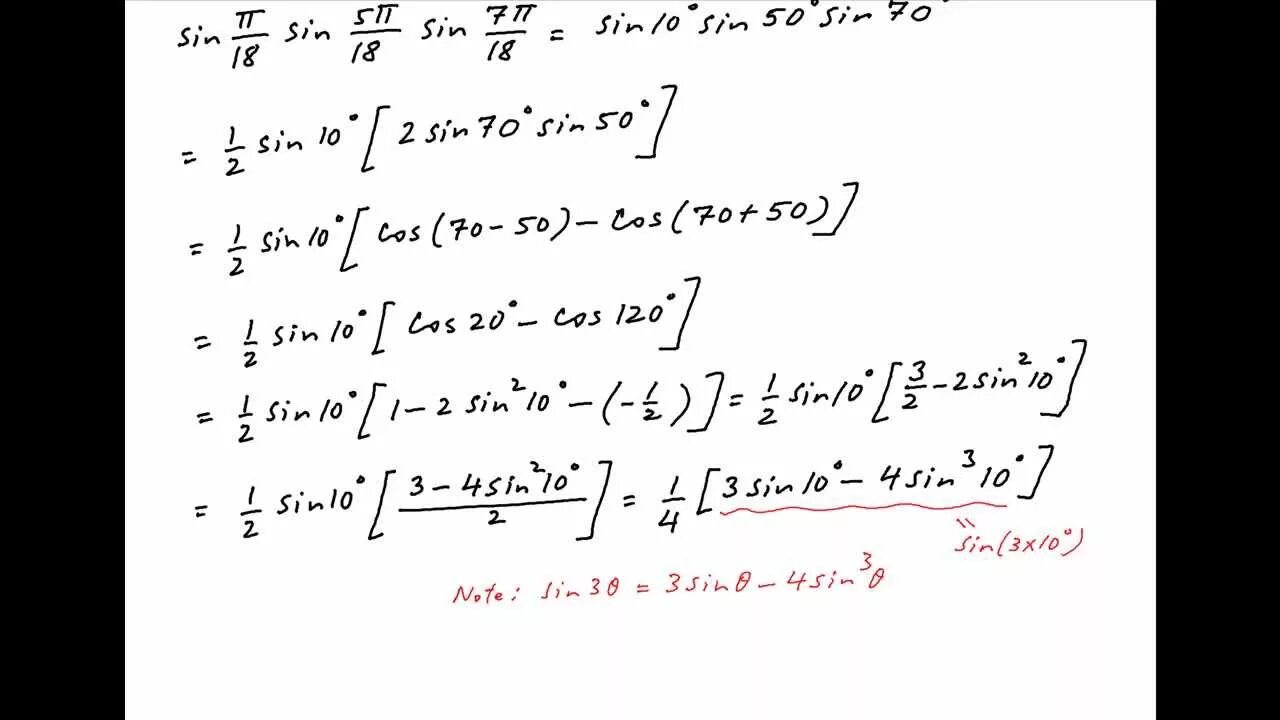 sin π/18 sin 5π/18 sin 7π/18 = sin 10° sin 50° sin 70°
= 1/2 sin 10° [2 sin 70° sin 50°]
= 1/2 sin 10° [cos(70-50) - cos(70+50)]
= 1/2 sin 10° [cos 20° - cos 120°]
= 1/2 sin 10° [1 - 2 sin² 10° - (-1/2)] = 1/2 sin 10° [3/2 - 2 sin² 10°]
= 1/2 sin 10° [(3 - 4 sin² 10°)/2] = 1/4 [3 sin 10° - 4 sin³ 10°]
sin(3×10°)
Note: sin 3θ = 3 sin θ - 4 sin³ θ